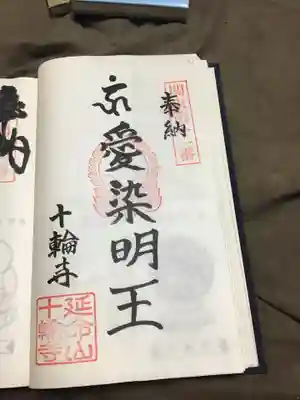 奉納
愛染明王
十輪寺
延命山
十輪寺